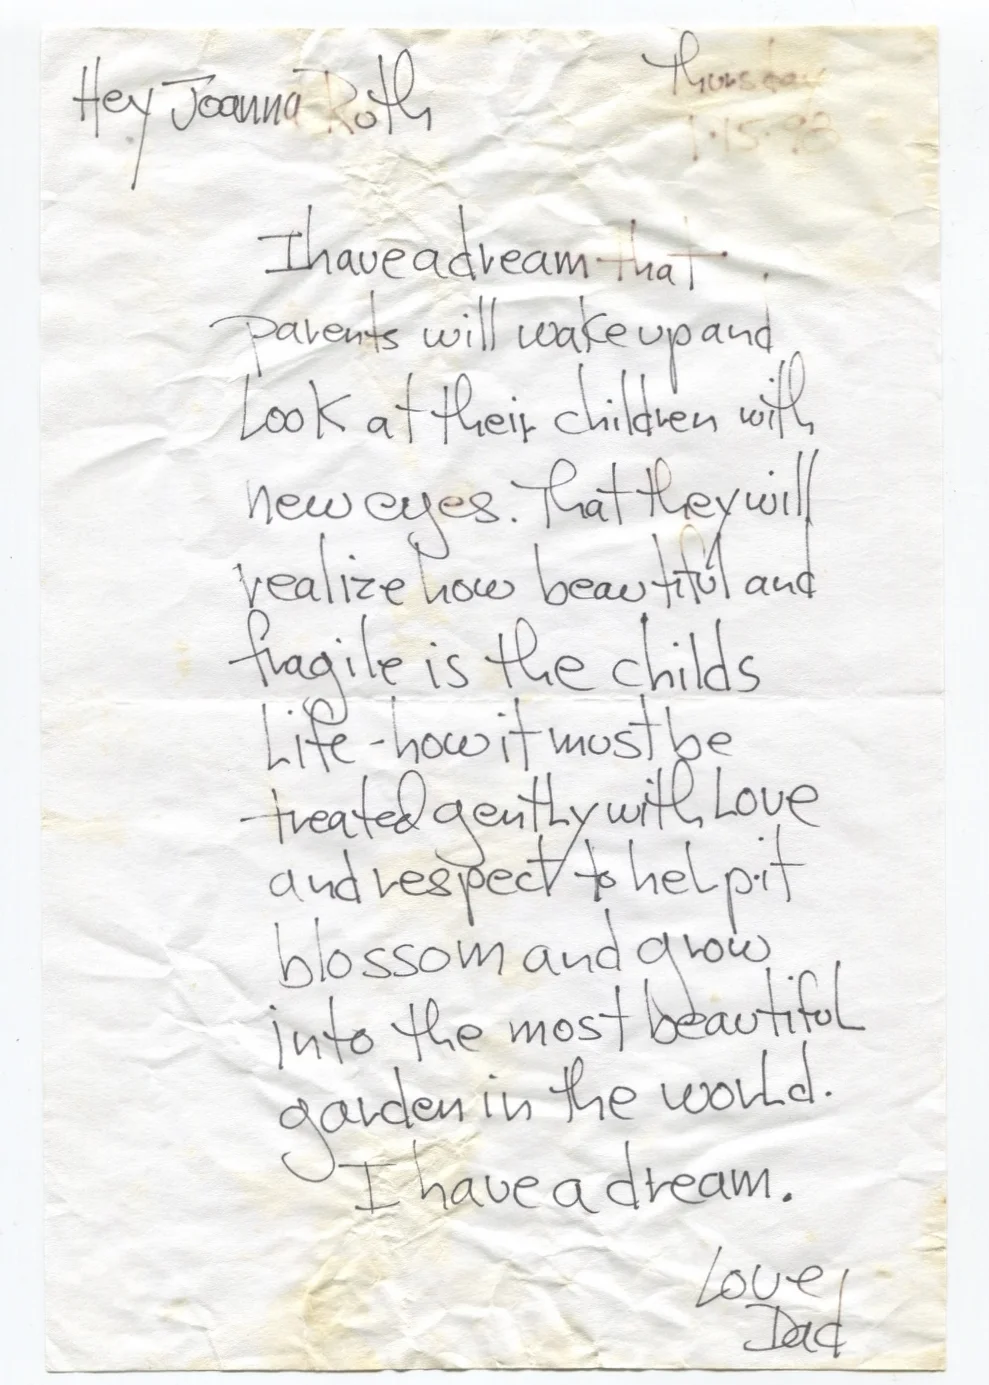 Hey Joanna Roth
Thursday
1.15.98
I have a dream that
parents will wake up and
Look at their children with
new eyes. That they will
realize how beautiful and
fragile is the childs
Life - how it must be
treated gently with Love
and respect to help it
blossom and grow
into the most beautiful
garden in the world.
I have a dream.
Love,
Dad